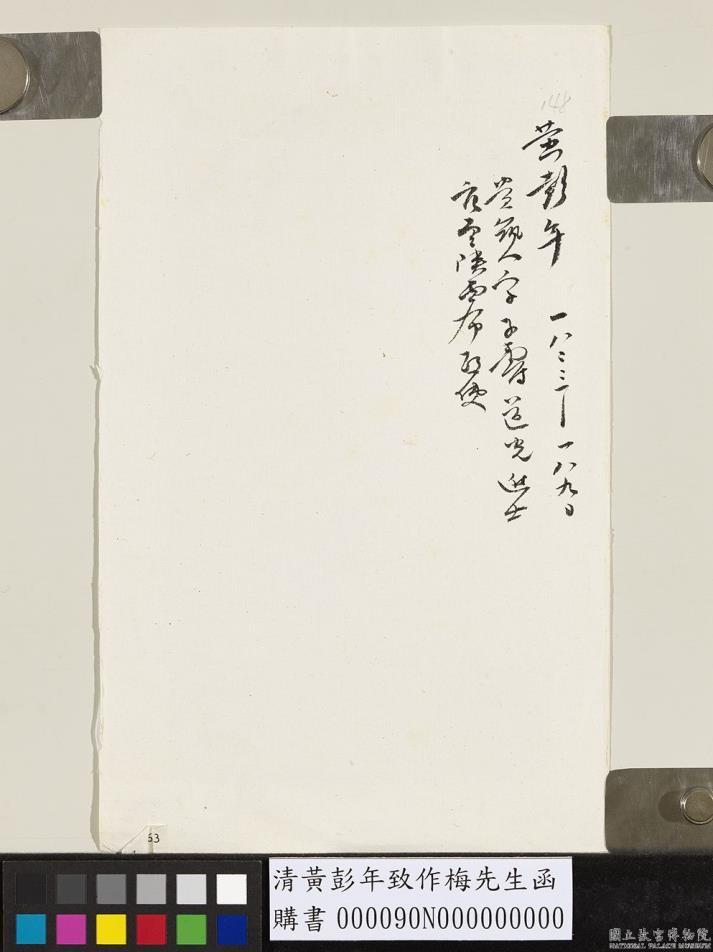 148
黃彭年 一八二三—一八九〇
貴筑人字子壽道光進士
官至陝西布政使
53
清黃彭年致作梅先生函
購書 000090N000000000
國立故宮博物院
NATIONAL PALACE MUSEUM